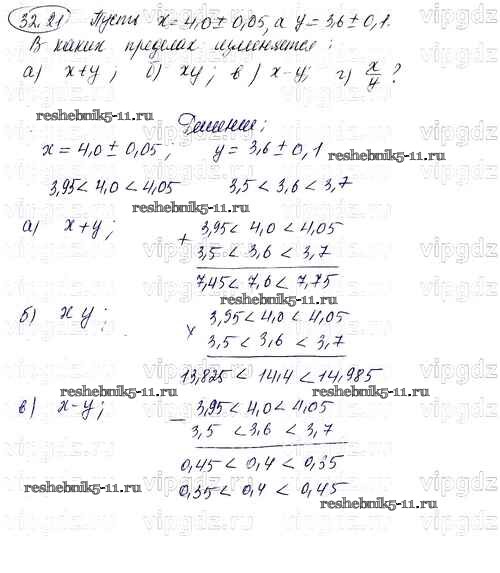 32.21 Пусть x = 4,0 ± 0,05, а y = 3,6 ± 0,1.
В каких пределах изменяется:
а) x+y; б) xy; в) x-y; г) x/y?
reshebnik5-11.ru
Решение;
x = 4,0 ± 0,05; y = 3,6 ± 0,1
reshebnik5-11.ru
3,95 < 4,0 < 4,05 3,5 < 3,6 < 3,7
reshebnik5-11.ru
а) x+y; + 3,95 < 4,0 < 4,05
3,5 < 3,6 < 3,7
7,45 < 7,6 < 7,75
reshebnik5-11.ru
б) x y; x 3,95 < 4,0 < 4,05
3,5 < 3,6 < 3,7
13,825 < 14,4 < 14,985
reshebnik5-11.ru reshebnik5-11.ru
в) x-y; - 3,95 < 4,0 < 4,05
3,5 < 3,6 < 3,7
0,45 < 0,4 < 0,35
reshebnik5-11.ru
0,35 < 0,4 < 0,45
reshebnik5-11.ru
vipgdz